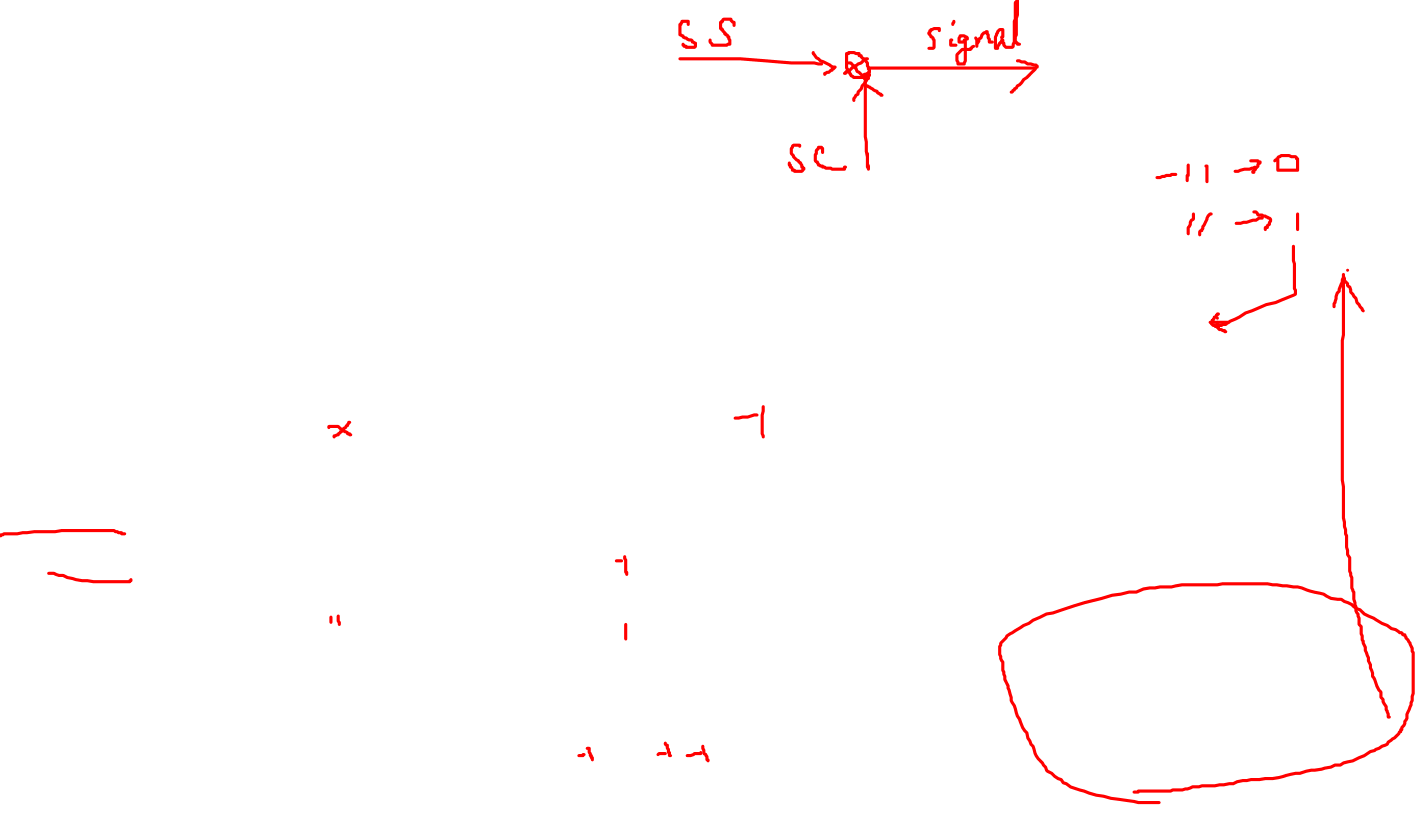 SS
signal
SC
-11 → 0
11 → 1
x
-1
-1
"
1
-1 -1 -1